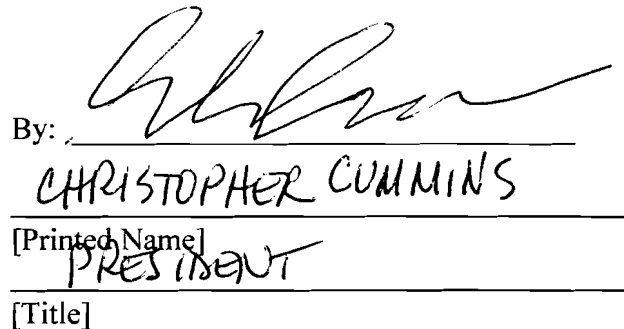 By:
CHRISTOPHER CUMMINS
[Printed Name]
PRESIDENT
[Title]